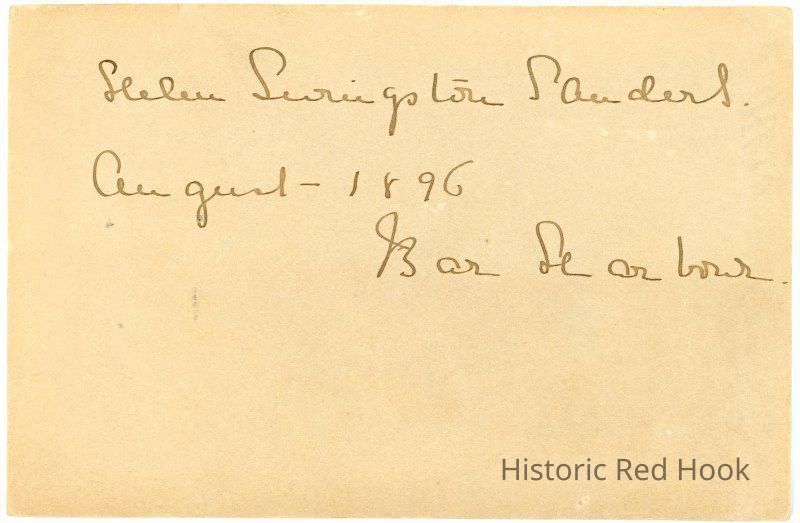 Helen Livingston Sanders.
August - 1896
Bar Harbour.
Historic Red Hook